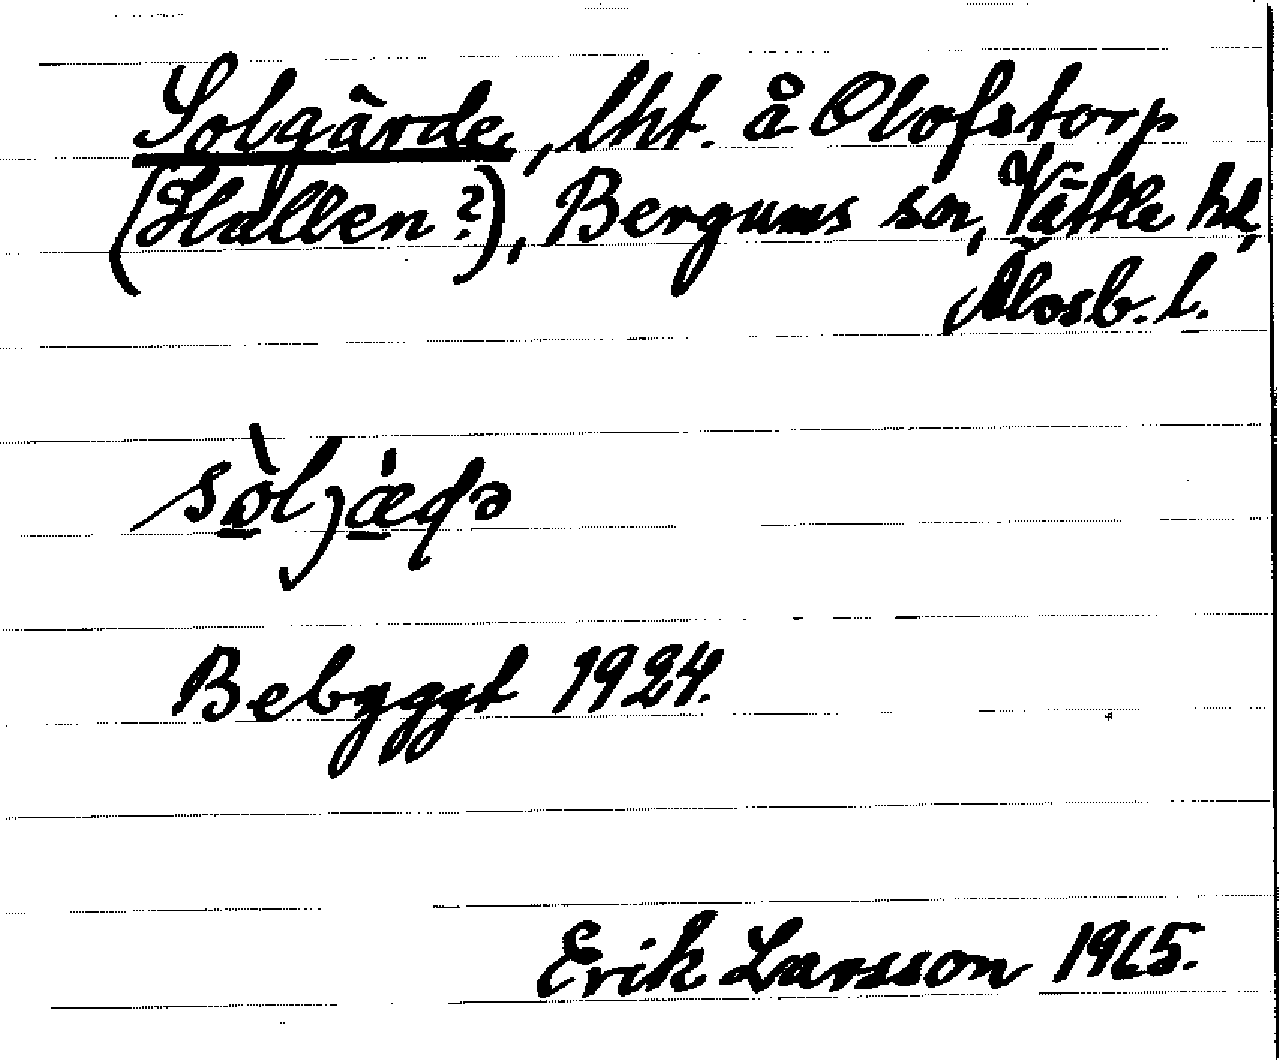 Solgärde, lht. å Olofstorp
(Hallen?), Bergums sn, Vättle hd,
Älvsb. l.
Bebyggt 1924.
Erik Larsson 1965.